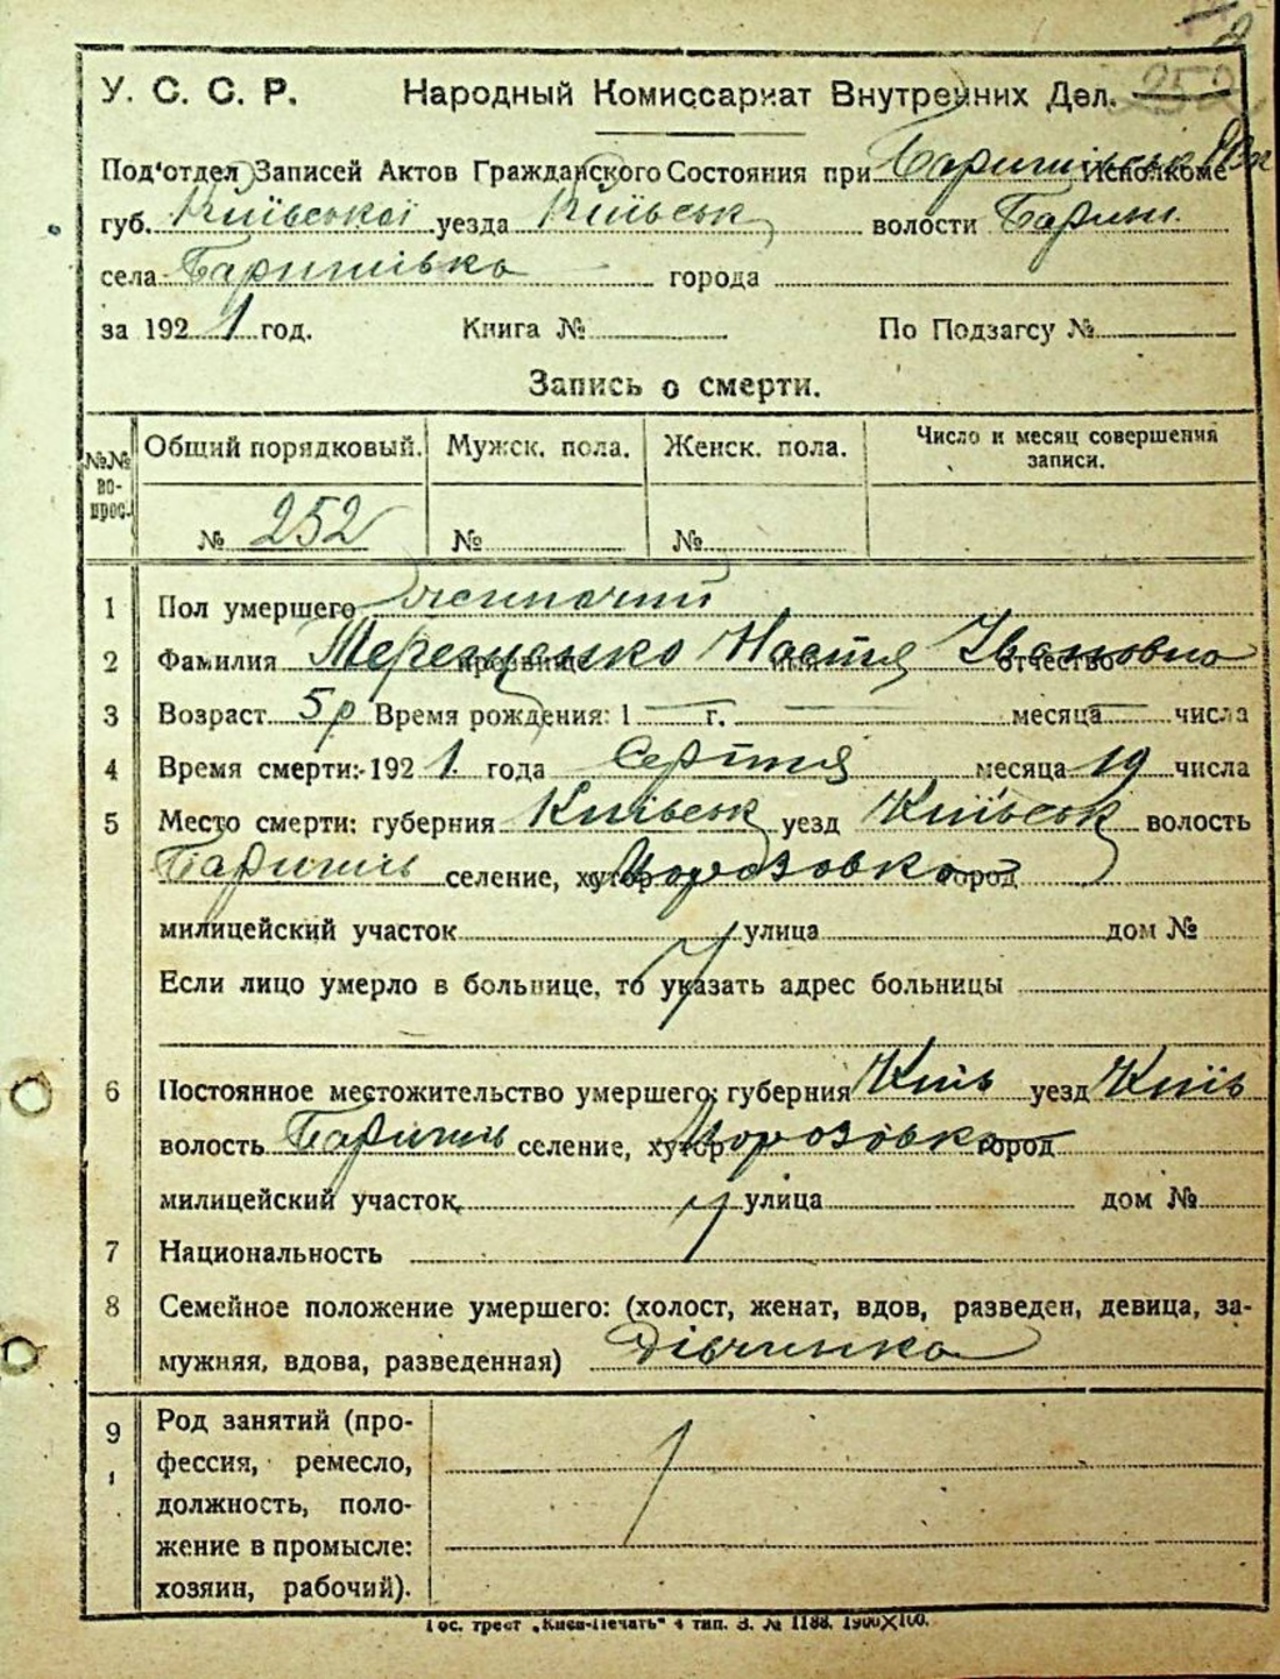 252
У. С. С. Р. Народный Комиссариат Внутренних Дел.
Под'отдел Записей Актов Гражданского Состояния при Баришівськ Исполкоме
губ. Київської уезда Київськ волости Бариш.
села Баришівка города
за 1921 год. Книга № По Подзагсу №
Запись о смерти.
№№ вопрос. Общий порядковый. Мужск. пола. Женск. пола. Число и месяц совершения записи.
№ 252 № №
1 Пол умершего жиночий
2 Фамилия Терещенко прозвище Настя имя Івановна отчество
3 Возраст 5 р Время рождения: 1 — г. — месяца — числа
4 Время смерти:-1921. года Серпня месяца 19 числа
5 Место смерти: губерния Київськ уезд Київськ волость
Баришів селение, хутор Морозовка город
милицейский участок улица дом №
Если лицо умерло в больнице, то указать адрес больницы
6 Постоянное местожительство умершего: губерния Київ уезд Київ
волость Баришів селение, хутор Морозовка город
милицейский участок улица дом №
7 Национальность
8 Семейное положение умершего: (холост, женат, вдов, разведен, девица, за-
мужняя, вдова, разведенная) Дівчинка
9 Род занятий (про-
фессия, ремесло,
должность, поло-
жение в промысле:
хозяин, рабочий).
Гос. трест „Киев-Печать" 4 тип. З. № 1188. 1900Х100.